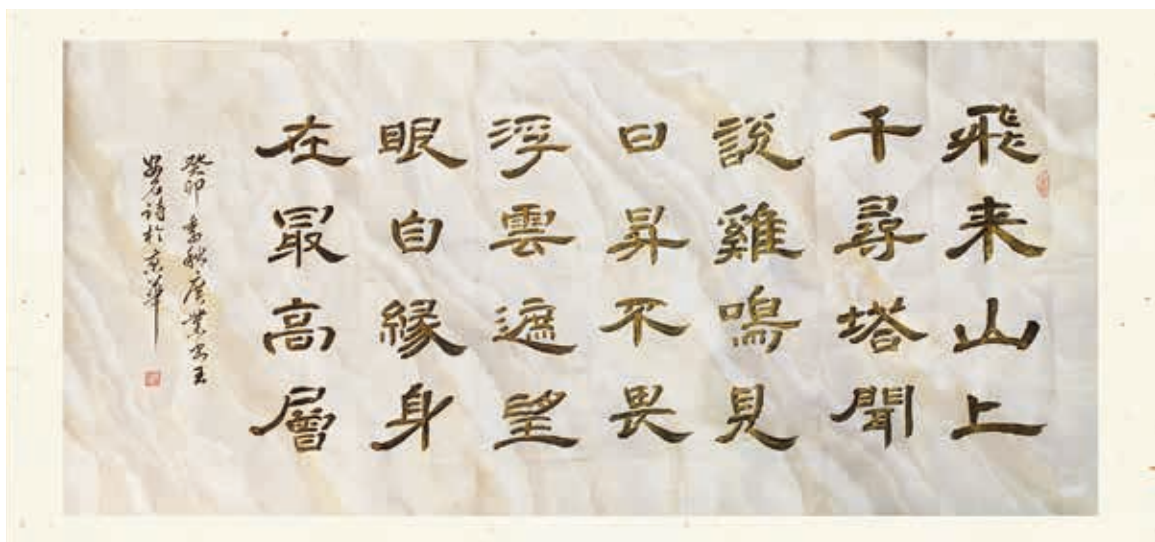 飛来山上
千尋塔聞
說雞鳴見
日昇不畏
浮雲遮望
眼自縁身
在最高層
癸卯季秋業王
安石詩於京華